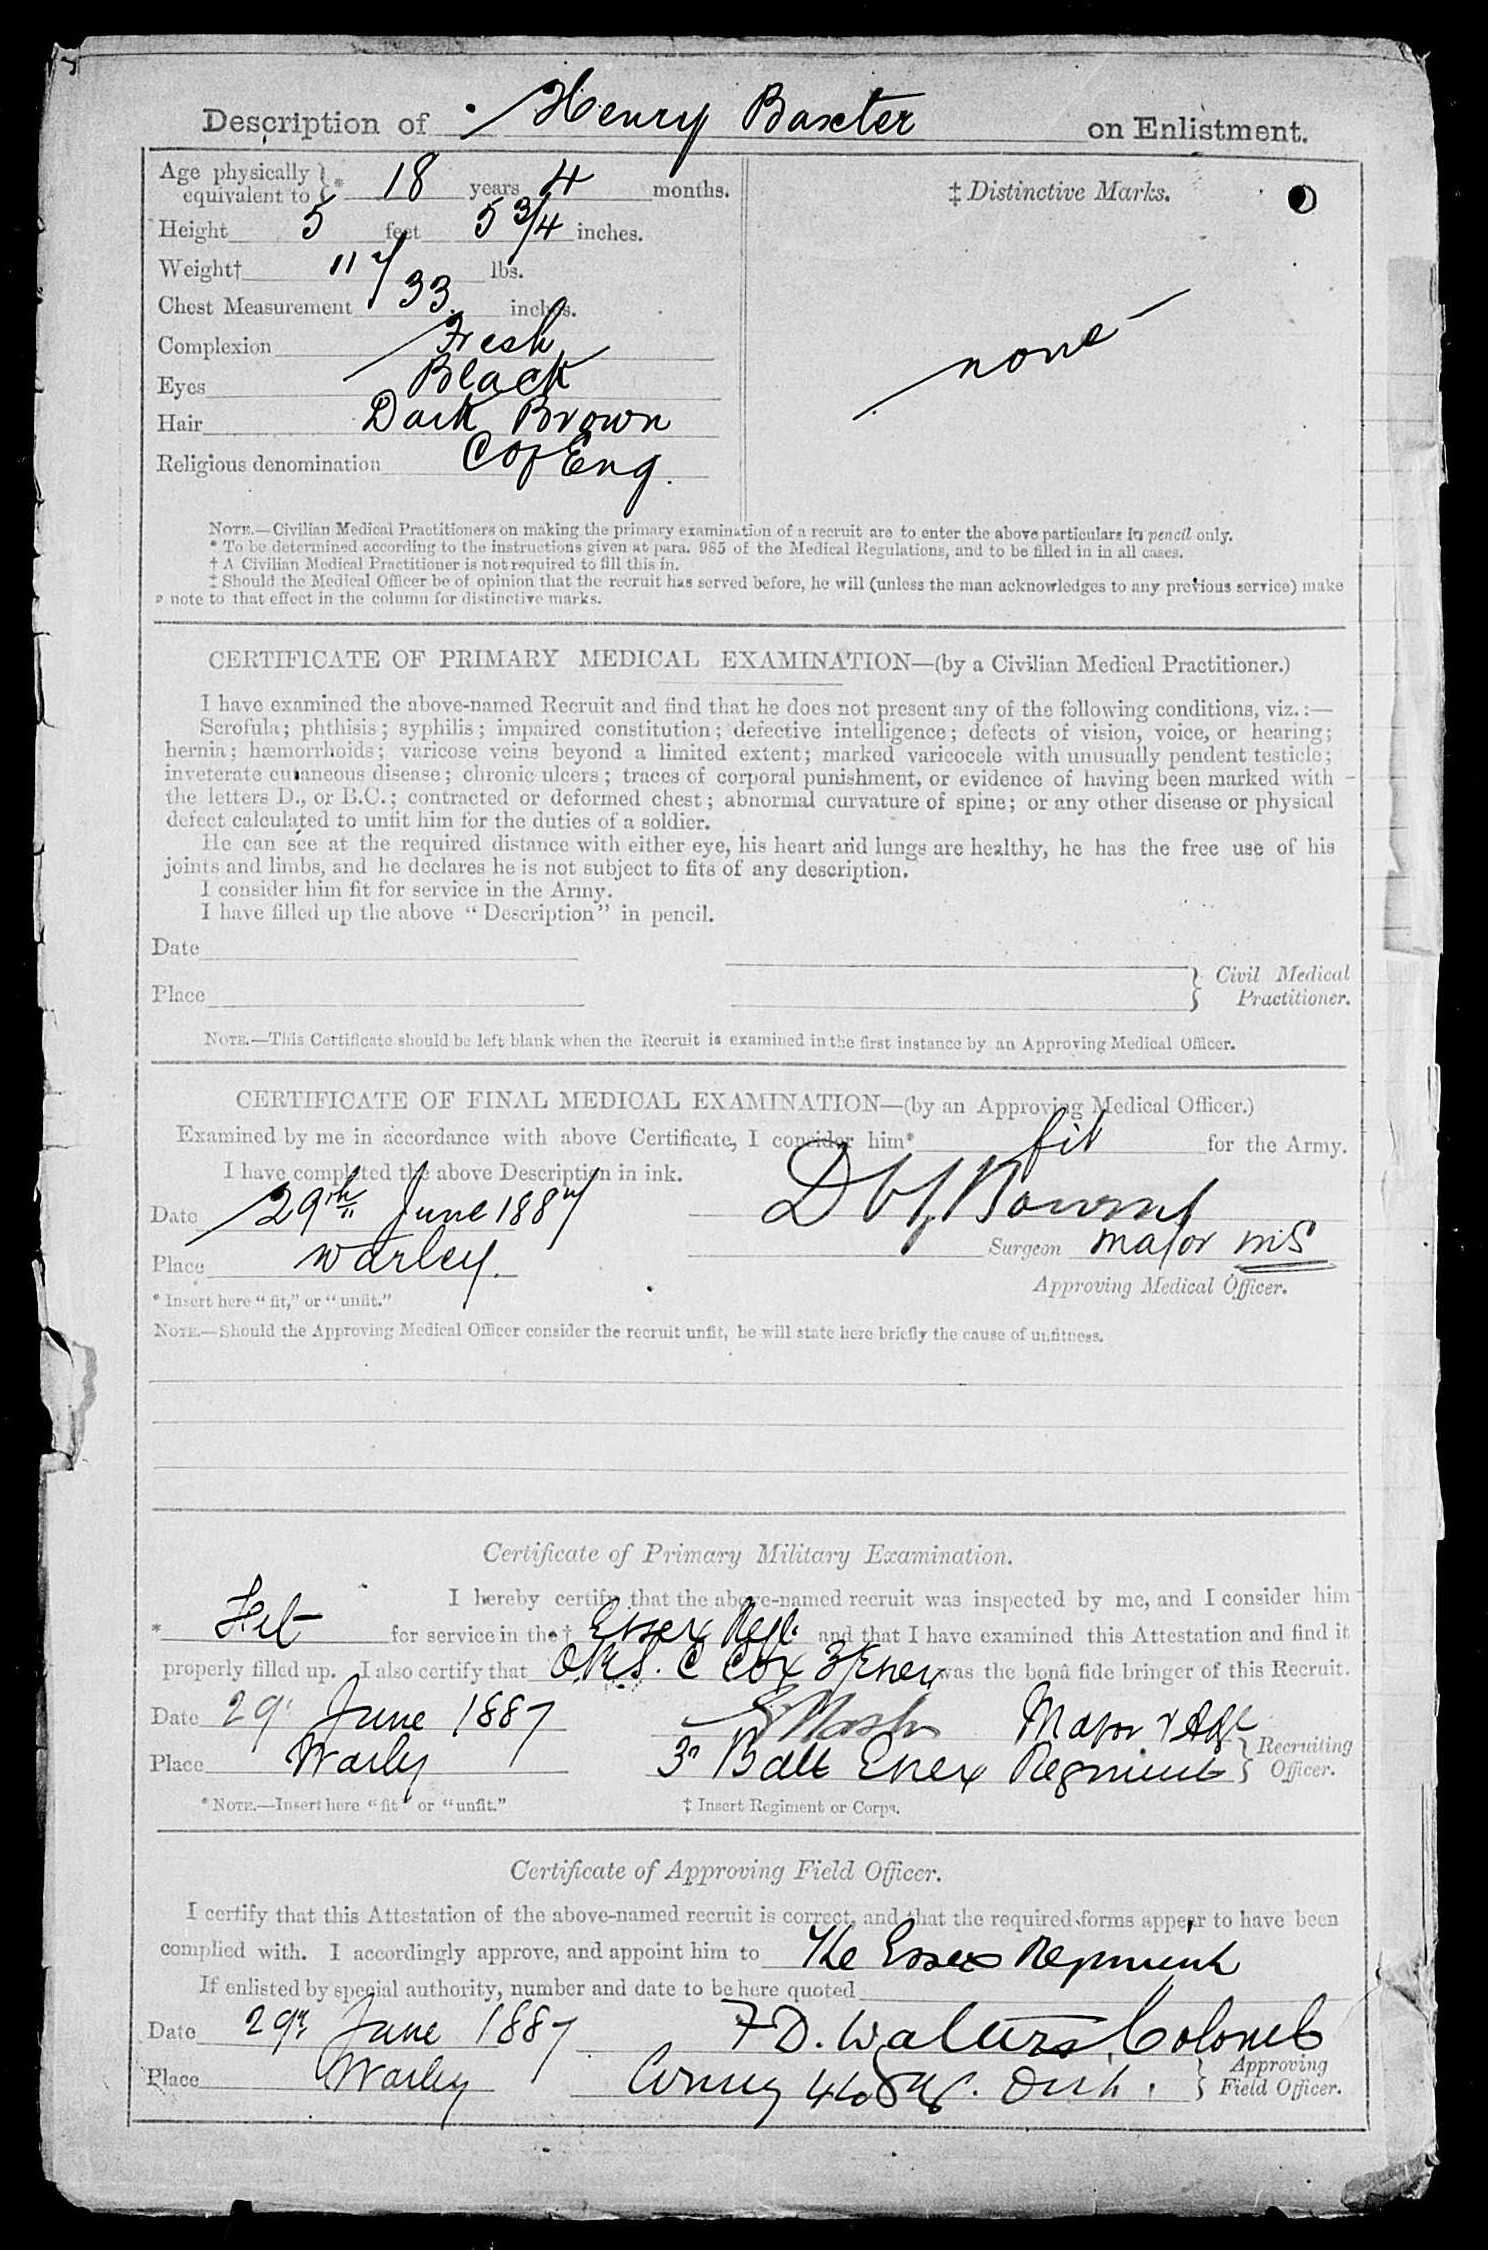 Description of Henry Baxter on Enlistment.
Age physically equivalent to }* 18 years 4 months.
‡ Distinctive Marks.
Height 5 feet 5 3/4 inches.
Weight† 117 lbs.
Chest Measurement 33 inches.
Complexion Fresh
none
Eyes Black
Hair Dark Brown
Religious denomination C of Eng.
NOTE.—Civilian Medical Practitioners on making the primary examination of a recruit are to enter the above particulars in pencil only.
* To be determined according to the instructions given at para. 985 of the Medical Regulations, and to be filled in in all cases.
† A Civilian Medical Practitioner is not required to fill this in.
‡ Should the Medical Officer be of opinion that the recruit has served before, he will (unless the man acknowledges to any previous service) make
a note to that effect in the column for distinctive marks.
CERTIFICATE OF PRIMARY MEDICAL EXAMINATION—(by a Civilian Medical Practitioner.)
I have examined the above-named Recruit and find that he does not present any of the following conditions, viz.:—
Scrofula; phthisis; syphilis; impaired constitution; defective intelligence; defects of vision, voice, or hearing;
hernia; hæmorrhoids; varicose veins beyond a limited extent; marked varicocele with unusually pendent testicle;
inveterate cutaneous disease; chronic ulcers; traces of corporal punishment, or evidence of having been marked with
the letters D., or B.C.; contracted or deformed chest; abnormal curvature of spine; or any other disease or physical
defect calculated to unfit him for the duties of a soldier.
He can see at the required distance with either eye, his heart and lungs are healthy, he has the free use of his
joints and limbs, and he declares he is not subject to fits of any description.
I consider him fit for service in the Army.
I have filled up the above "Description" in pencil.
Date
Place
} Civil Medical Practitioner.
NOTE.—This Certificate should be left blank when the Recruit is examined in the first instance by an Approving Medical Officer.
CERTIFICATE OF FINAL MEDICAL EXAMINATION—(by an Approving Medical Officer.)
Examined by me in accordance with above Certificate, I consider him* fit for the Army.
I have completed the above Description in ink.
Date 29th June 1887
Place Warley.
Surgeon Major MS
Approving Medical Officer.
* Insert here "fit," or "unfit."
NOTE.—Should the Approving Medical Officer consider the recruit unfit, he will state here briefly the cause of unfitness.
Certificate of Primary Military Examination.
I hereby certify that the above-named recruit was inspected by me, and I consider him
* Fit for service in the † Essex Regt. and that I have examined this Attestation and find it
properly filled up. I also certify that C Cox 3/Essex was the bonâ fide bringer of this Recruit.
Date 29 June 1887 Major & Adjt
Place Warley 3rd Batt Essex Regiment } Recruiting Officer.
* NOTE.—Insert here "fit" or "unfit." ‡ Insert Regiment or Corps.
Certificate of Approving Field Officer.
I certify that this Attestation of the above-named recruit is correct, and that the required forms appear to have been
complied with. I accordingly approve, and appoint him to The Essex Regiment
If enlisted by special authority, number and date to be here quoted
Date 29th June 1887 F D. Walters. Colonel
Place Warley 44 Dist. } Approving Field Officer.